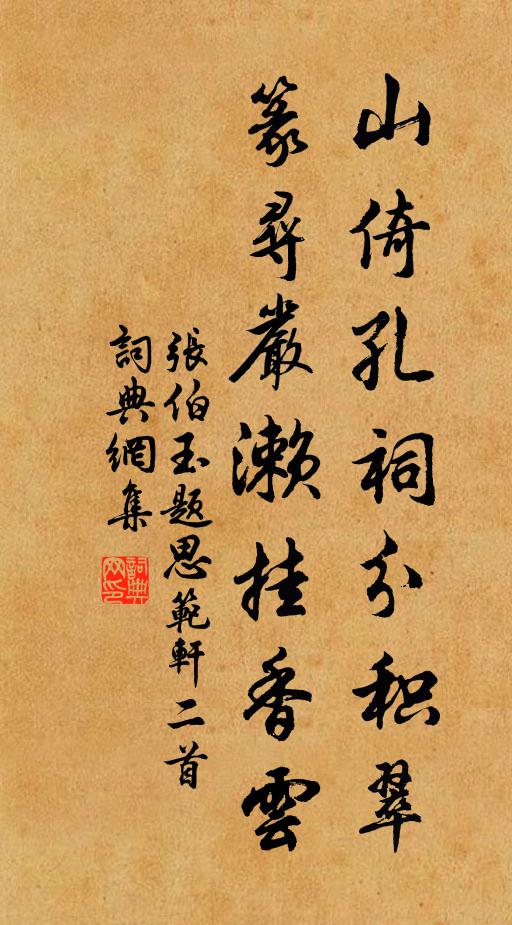 山倚孔祠分积翠
篆寻嚴濑挂香雲
張伯玉题思範軒二首
詞典網集
詞典网印